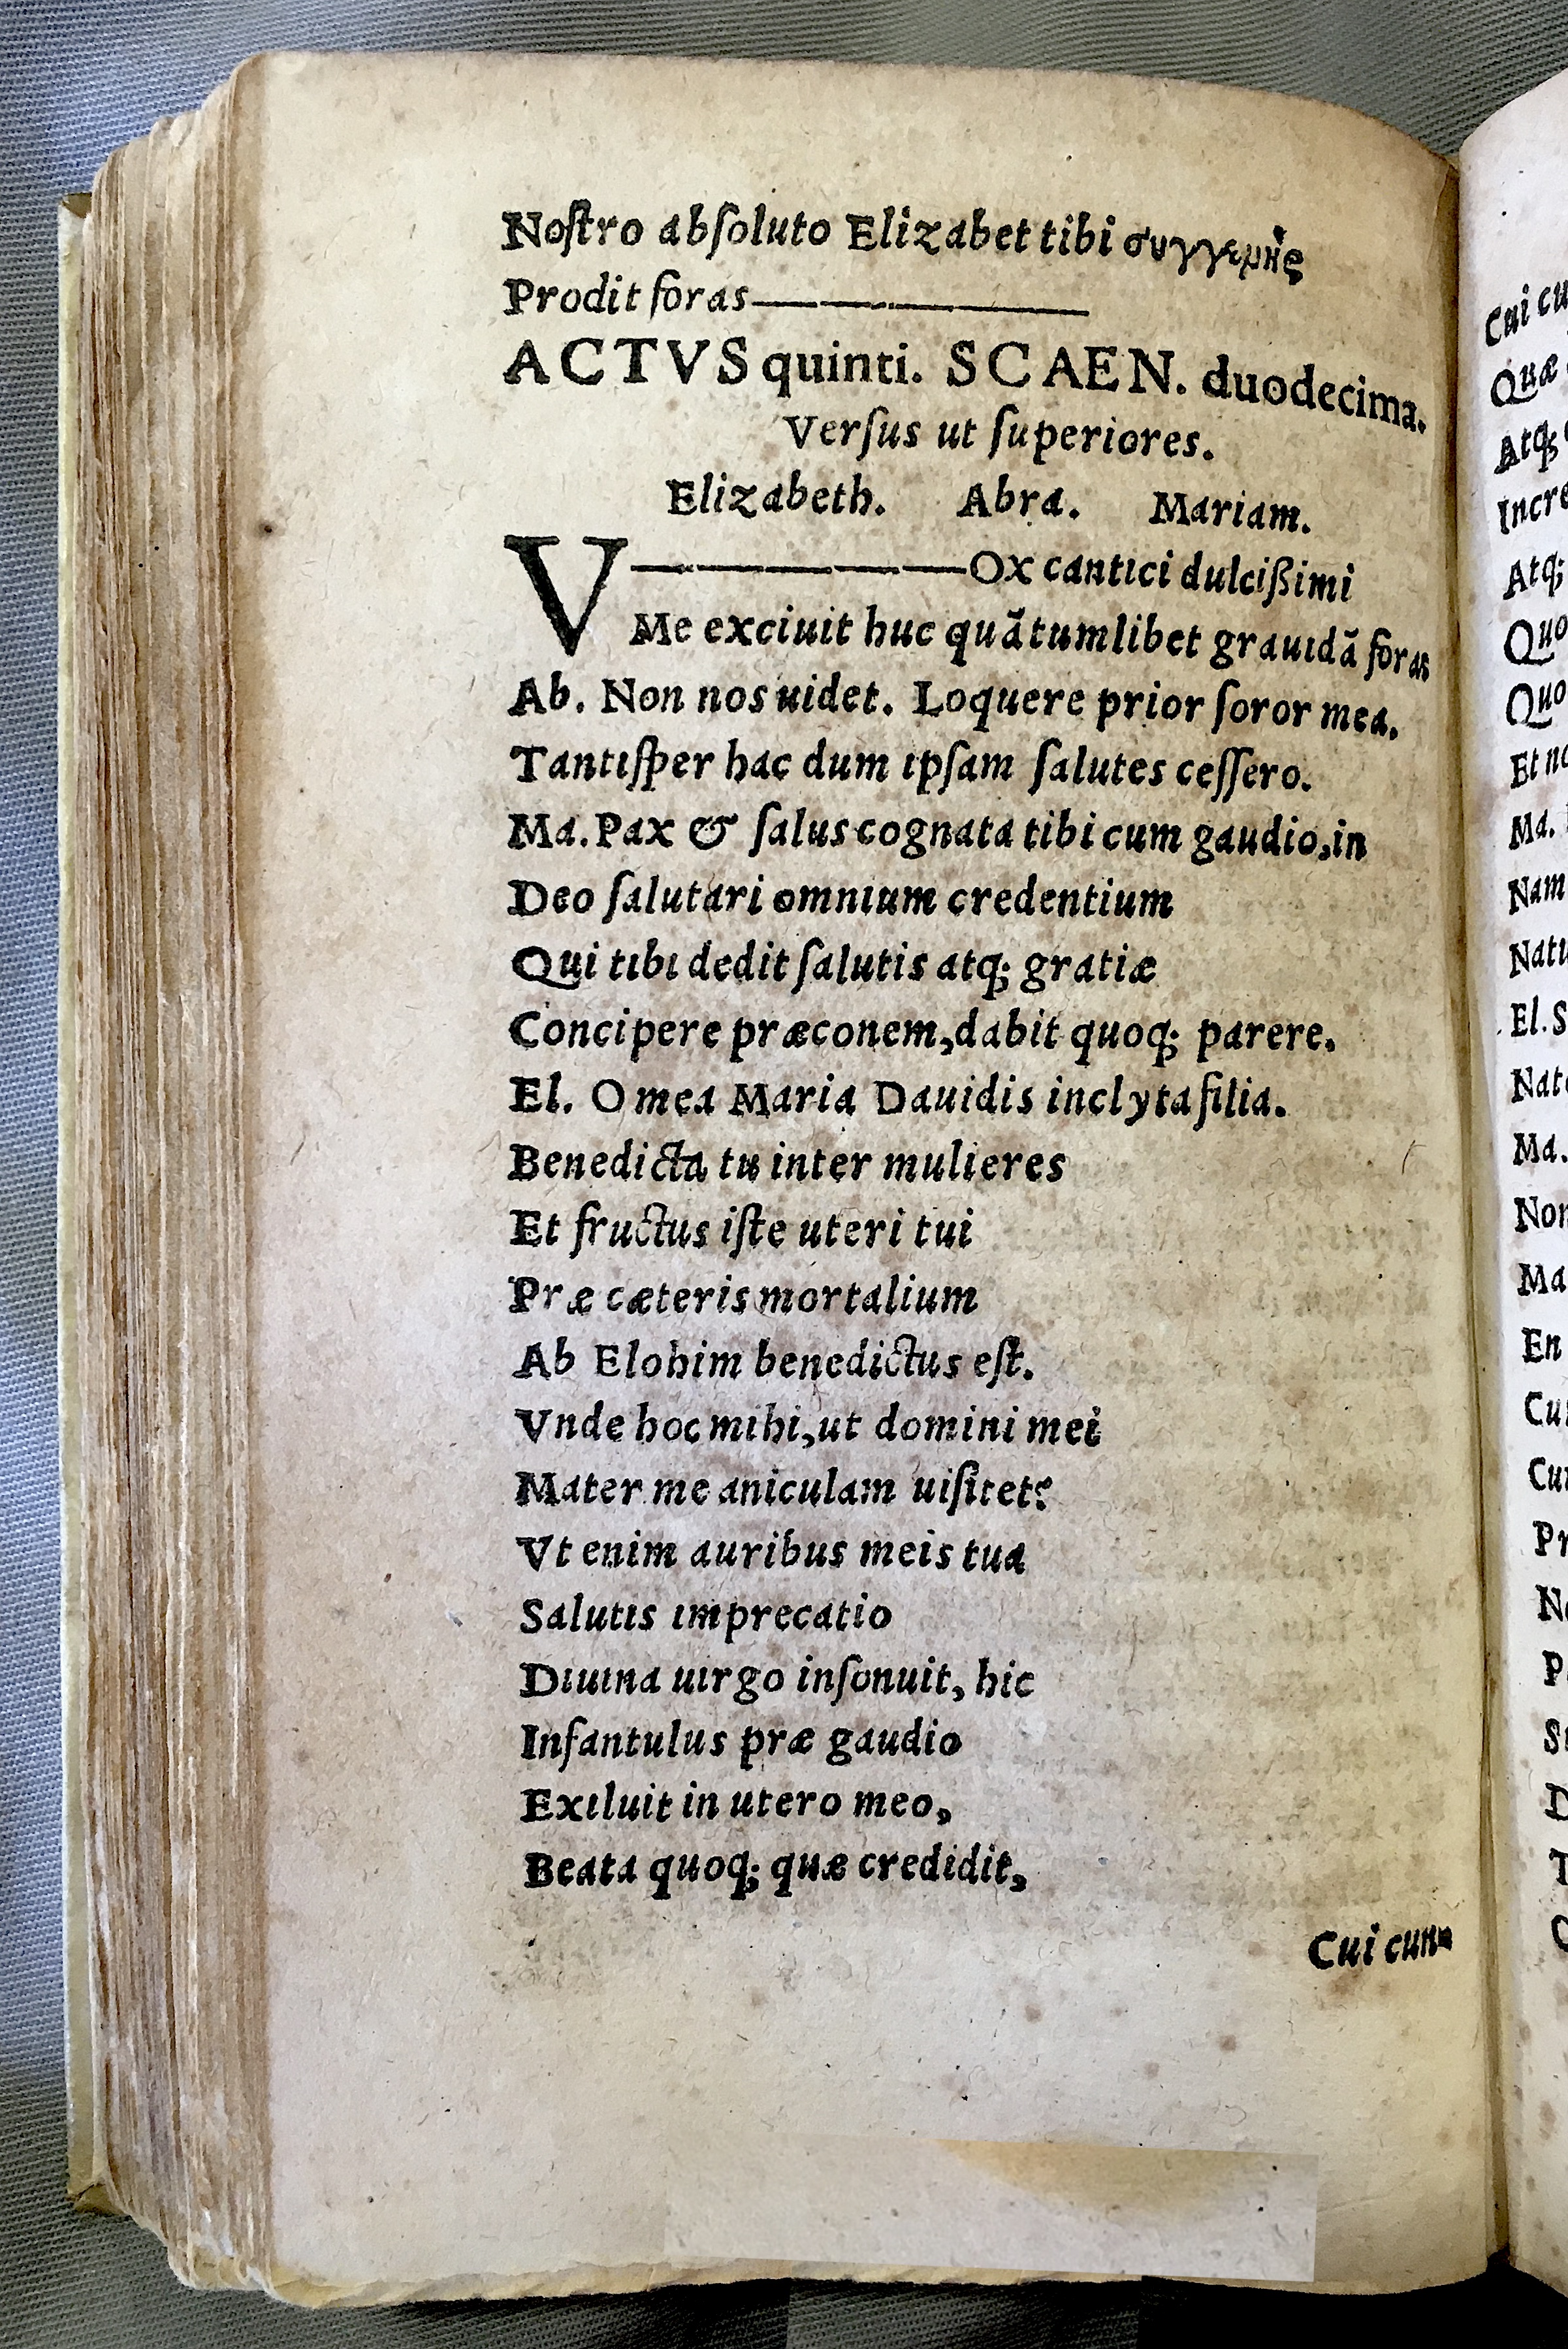 Noſtro abſoluto Elizabet tibi συγγενὴς
Prodit foras————
ACTVS quinti. SCAEN. duodecima.
Verſus ut ſuperiores.
Elizabeth. Abra. Mariam.
V————Ox cantici dulcißimi
Me exciuit huc quãtumlibet grauidã foras
Ab. Non nos uidet. Loquere prior ſoror mea.
Tantiſper hac dum ipſam ſalutes ceſſero.
Ma. Pax & ſalus cognata tibi cum gaudio, in
Deo ſalutari omnium credentium
Qui tibi dedit ſalutis atq; gratiæ
Concipere præconem, dabit quoq; parere.
El. O mea Maria Dauidis inclyta filia.
Benedicta tu inter mulieres
Et fructus iſte uteri tui
Præ cæteris mortalium
Ab Elohim benedictus eſt.
Vnde hoc mihi, ut domini mei
Mater me aniculam uiſitet?
Vt enim auribus meis tua
Salutis imprecatio
Diuina uirgo inſonuit, hic
Infantulus præ gaudio
Exiluit in utero meo,
Beata quoq; quæ credidit,
Cui cun⸗
Cui cu
Quæ
Atq;
Incre
Atq;
Quo
Quo
Et no
Ma.
Nam
Natu
El. S
Nat
Ma.
Non
Ma
En
Cu
Cu
Pr